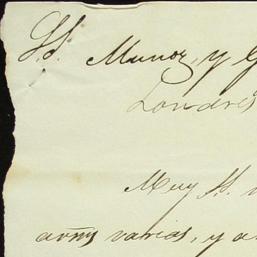 SS. Munoz, y G
Londres
Muy SS.
varias, y a